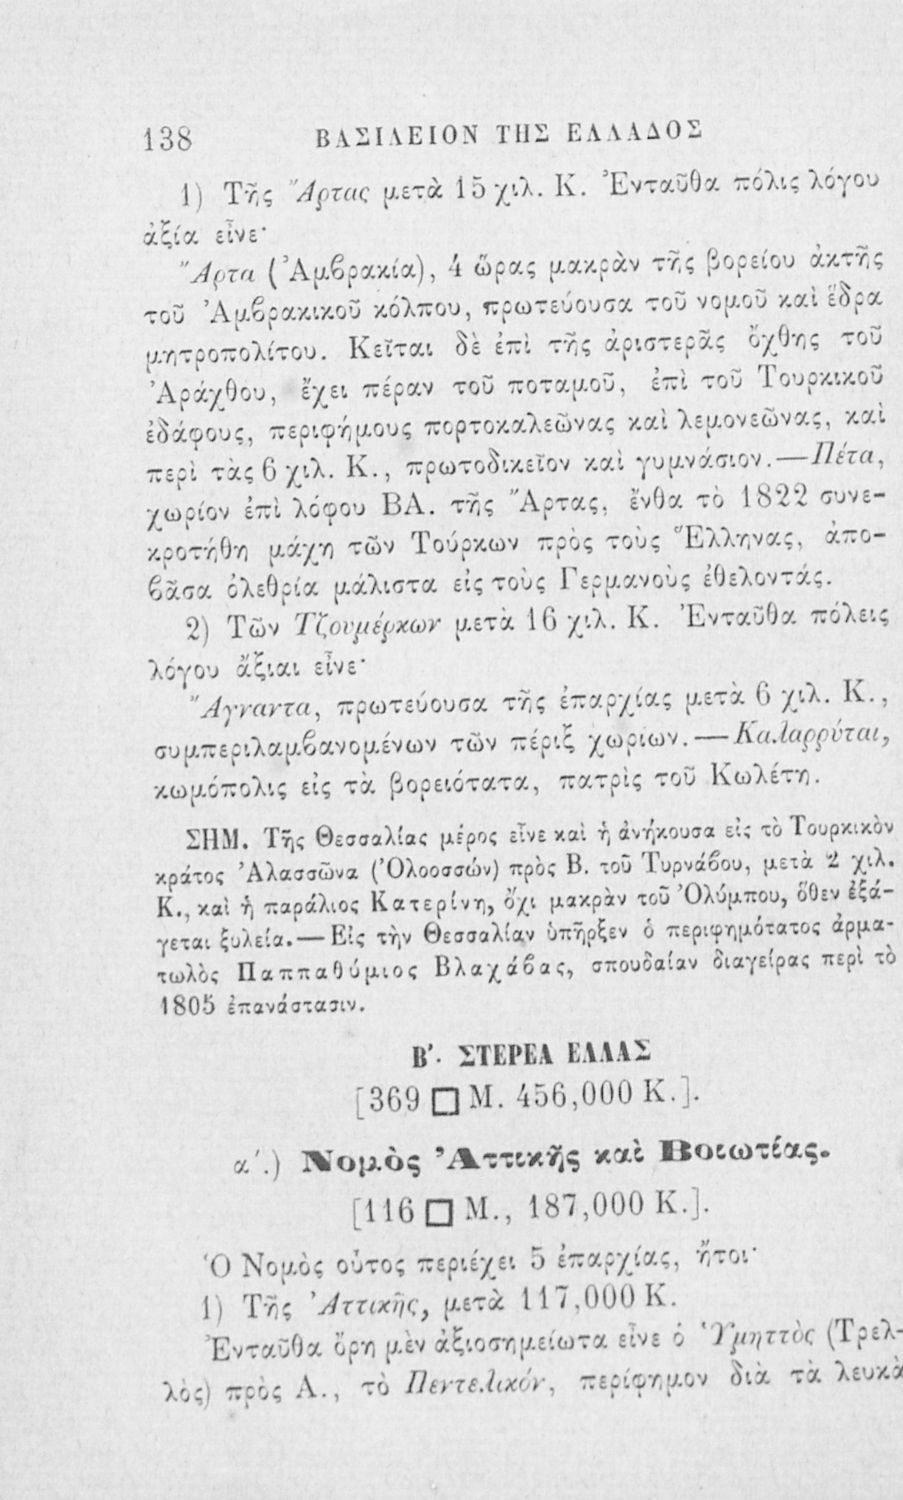 138 ΒΑΣΙΛΕΙΟΝ ΤΗΣ ΕΛΛΑΔΟΣ
1) Τῆς Ἄρτας μετὰ 15 χιλ. Κ. Ἐνταῦθα πόλις λόγου
ἀξία εἶνε·
Ἄρτα (Ἀμβρακία), 4 ὥρας μακρὰν τῆς βορείου ἀκτῆς
τοῦ Ἀμβρακικοῦ κόλπου, πρωτεύουσα τοῦ νομοῦ καὶ ἕδρα
μητροπολίτου. Κεῖται δὲ ἐπὶ τῆς ἀριστερᾶς ὄχθης τοῦ
Ἀράχθου, ἔχει πέραν τοῦ ποταμοῦ, ἐπὶ τοῦ Τουρκικοῦ
ἐδάφους, περιφήμους πορτοκαλεῶνας καὶ λεμονεῶνας, καὶ
περὶ τὰς 6 χιλ. Κ., πρωτοδικεῖον καὶ γυμνάσιον.—Πέτα,
χωρίον ἐπὶ λόφου ΒΑ. τῆς Ἄρτας, ἔνθα τὸ 1822 συνε-
κροτήθη μάχη τῶν Τούρκων πρὸς τοὺς Ἕλληνας, ἀπο-
βᾶσα ὀλεθρία μάλιστα εἰς τοὺς Γερμανοὺς ἐθελοντάς.
2) Τῶν Τζουμέρκων μετὰ 16 χιλ. Κ. Ἐνταῦθα πόλεις
λόγου ἄξιαι εἶνε·
Ἄγναντα, πρωτεύουσα τῆς ἐπαρχίας μετὰ 6 χιλ. Κ.,
συμπεριλαμβανομένων τῶν πέριξ χωρίων.—Καλαρρύται,
κωμόπολις εἰς τὰ βορειότατα, πατρὶς τοῦ Κωλέτη.
ΣΗΜ. Τῆς Θεσσαλίας μέρος εἶνε καὶ ἡ ἀνήκουσα εἰς τὸ Τουρκικὸν
κράτος Ἀλασσῶνα (Ὀλοοσσών) πρὸς Β. τοῦ Τυρνάβου, μετὰ 2 χιλ.
Κ., καὶ ἡ παράλιος Κατερίνη, ὄχι μακρὰν τοῦ Ὀλύμπου, ὅθεν ἐξά-
γεται ξυλεία.—Εἰς τὴν Θεσσαλίαν ὑπῆρξεν ὁ περιφημότατος ἁρμα-
τωλὸς Παππαθύμιος Βλαχάβας, σπουδαίαν διαγείρας περὶ τὸ
1805 ἐπανάστασιν.
Β΄. ΣΤΕΡΕΑ ΕΛΛΑΣ
[369 □ Μ. 456,000 Κ.].
α΄.) Νομὸς Ἀττικῆς καὶ Βοιωτίας.
[116 □ Μ., 187,000 Κ.].
Ὁ Νομὸς οὗτος περιέχει 5 ἐπαρχίας, ἤτοι·
1) Τῆς Ἀττικῆς, μετὰ 117,000 Κ.
Ἐνταῦθα ὄρη μὲν ἀξιοσημείωτα εἶνε ὁ Ὑμηττὸς (Τρελ-
λὸς) πρὸς Α., τὸ Πεντελικόν, περίφημον διὰ τὰ λευκὰ